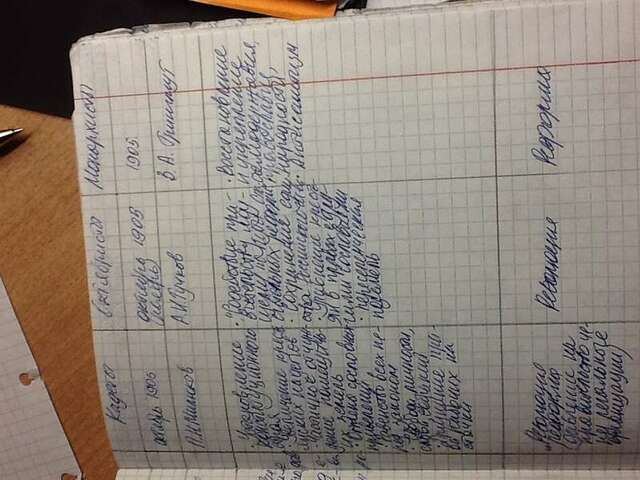 Кадеты
Октябристы
Монархисты
октябрь 1905
октябрь 1905
(ноябрь)
1905
П.Н. Милюков
А.И. Гучков
В.А. Грингмут
· Установление
конституционного
· Увеличение крест
янских наделов
· Частичное отчуж
дение помещичь
их земель
· Отмена сословных
привилегий
· Равенство всех пе-
ред законом
· Свобода личности,
слова, собраний
пра-
ва рабочих на
стачки
· "Содействие пра-
вительству иду-
щему по пути спа
сительных реформ"
· Сохранение един
ства Российского гос-ва
· Уравнение крест
ян в правах с дру
гими сословиями
· переселенческая
· Восстановление
и укрепление
самодержавия,
православия,
народности,
· Антисемитизм
Революция
реформа
(давление на
правительство че-
рез легальные
организации)
Революция
Реформа